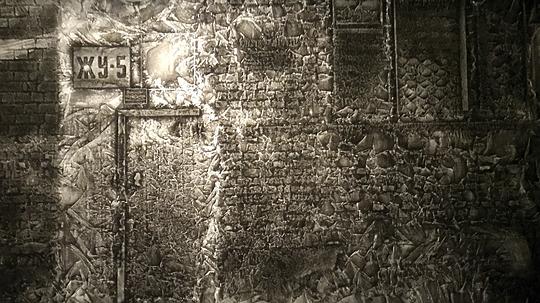 ЖУ-5